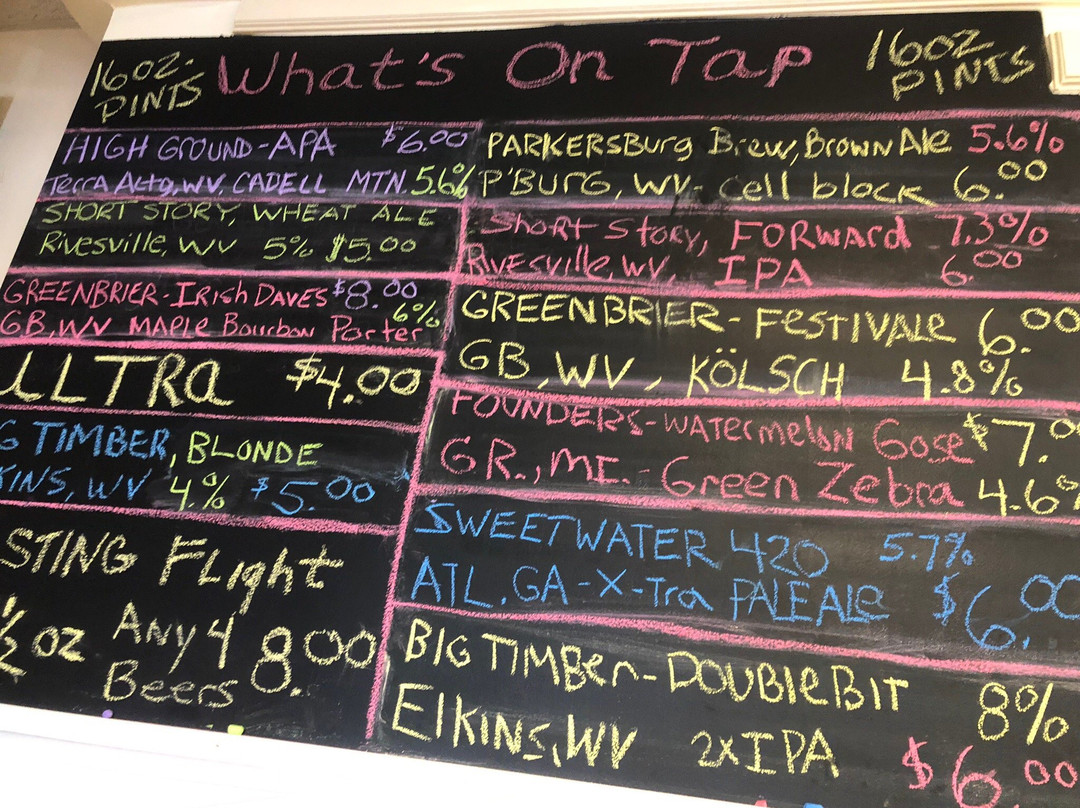 16OZ. PINTS
What's On Tap
16OZ PINTS
HIGH GROUND-APA $6.00
Terra Alta, WV, CADELL MTN. 5.6%
SHORT STORY, WHEAT ALE
Rivesville, WV 5% $5.00
GREENBRIER-IRISh DAVES $8.00
GB, WV MAPLe Bourbon Porter 6%
ULTRa $4.00
G TIMBER, BLONDE
KINS, WV 4.% $5.00
STING FLight
½ oz Any 4 Beers 8.00
PARKERSBurg Brew, Brown Ale 5.6%
P'BURG, WV- cell block 6.00
Short Story, FORWARd 7.3%
Rivesville, WV, IPA 6.00
GREENBRIER- FeSTIVALe 6.00
GB, WV, KÖLSCH 4.8%
FOUNDERS-WATermeloN Gose $7.0
GR., MI.- Green Zebra 4.6%
SWEETWATER 420 5.7%
ATL, GA-X-Tra PALE ALe $6.00
BIG TIMBer-DOUBleBIT 8%
ElKINS, WV 2xIPA $6.00